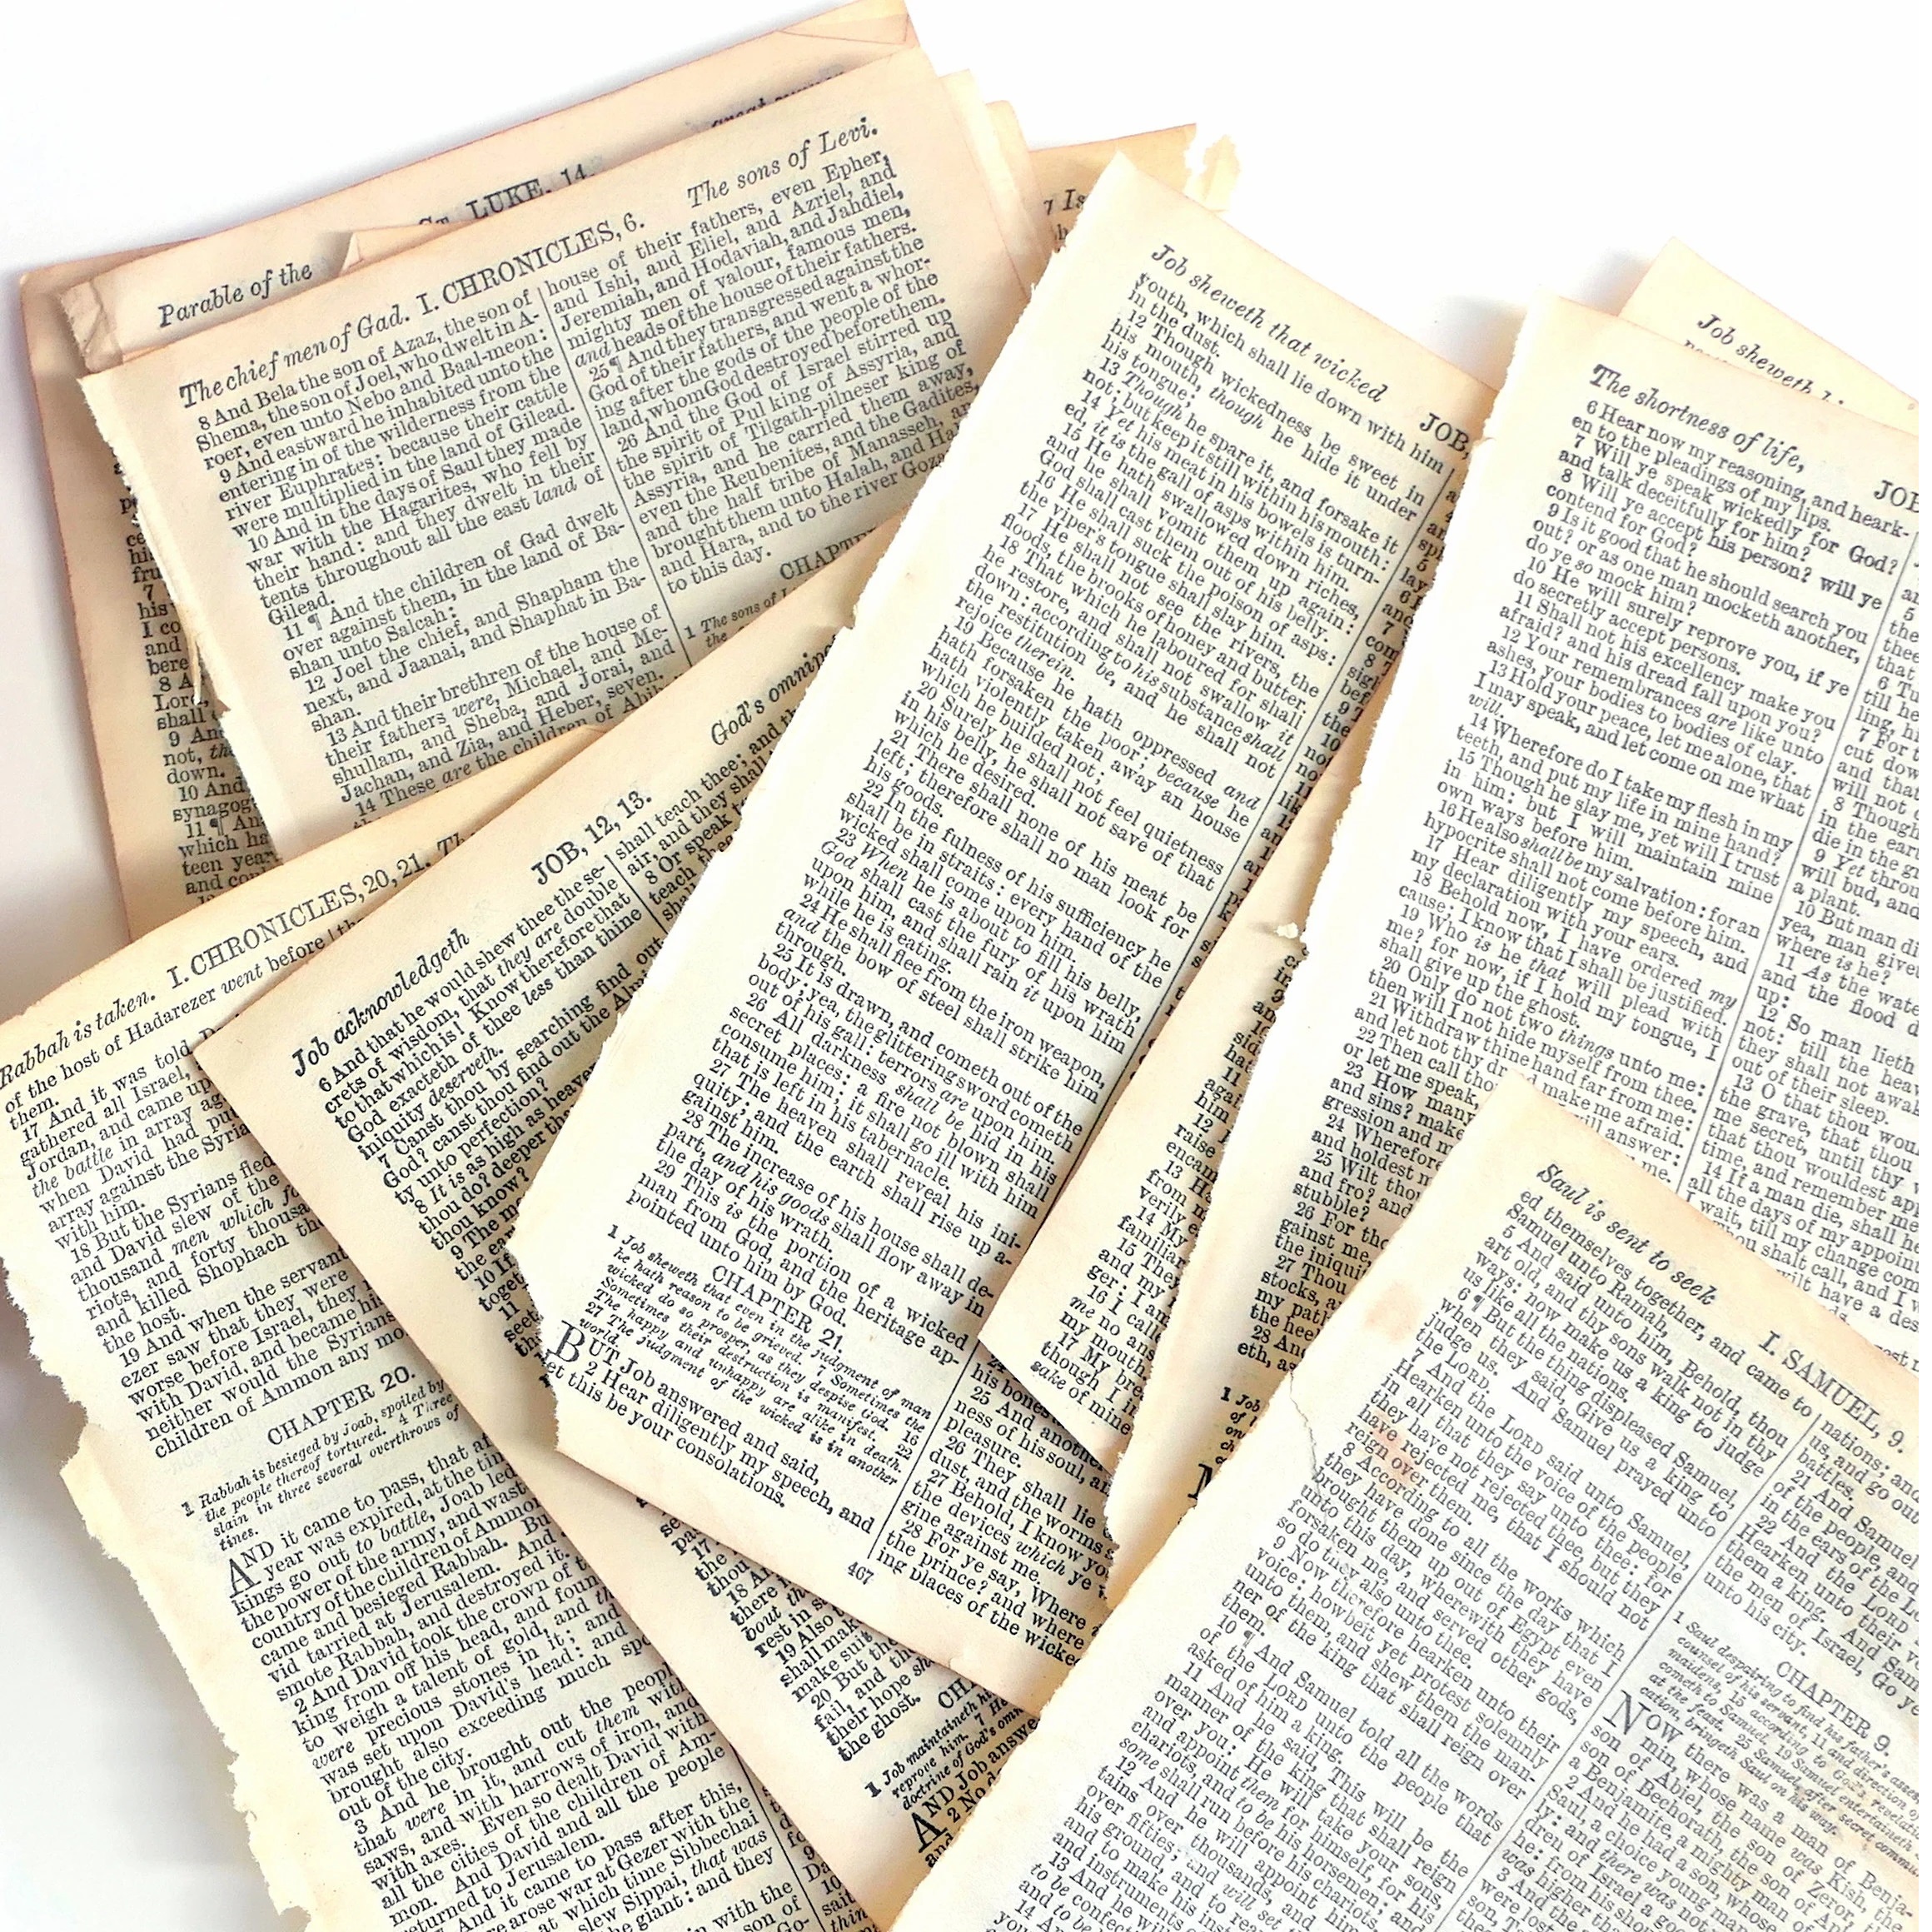 great
ST. LUKE, 14.
Parable of the
The chief men of Gad. I. CHRONICLES, 6. The sons of Levi.
8 And Bela the son of Azaz, the son of
Shema, the son of Joel, who dwelt in A-
roer, even unto Nebo and Baal-meon:
9 And eastward he inhabited unto the
entering in of the wilderness from the
river Euphrates: because their cattle
were multiplied in the land of Gilead.
10 And in the days of Saul they made
war with the Hagarites, who fell by
their hand: and they dwelt in their
tents throughout all the east land of
Gilead.
11 ¶ And the children of Gad dwelt
over against them, in the land of Ba-
shan unto Salcah:
12 Joel the chief, and Shapham the
next, and Jaanai, and Shaphat in Ba-
shan.
13 And their brethren of the house of
their fathers were, Michael, and Me-
shullam, and Sheba, and Jorai, and
Jachan, and Zia, and Heber, seven.
14 These are the children of Abih
house of their fathers, even Epher,
and Ishi, and Eliel, and Azriel, and
Jeremiah, and Hodaviah, and Jahdiel,
mighty men of valour, famous men,
and heads of the house of their fathers.
25 ¶ And they transgressed against the
God of their fathers, and went a whor-
ing after the gods of the people of the
land, whom God destroyed before them.
26 And the God of Israel stirred up
the spirit of Pul king of Assyria, and
the spirit of Tilgath-pilneser king of
Assyria, and he carried them away,
even the Reubenites, and the Gadites,
and the half tribe of Manasseh, an
brought them unto Halah, and Ha
and Hara, and to the river Goza
to this day.
CHAPTE
1 The sons of
the
his
I co
and
bere
8 A
Lord,
shall
9 And
not, th
down.
10 And
synagog
11 ¶ An
which ha
teen year
and cou
Rabbah is taken. I. CHRONICLES, 20, 21. Th
of the host of Hadarezer went before
them.
17 And it was told D
gathered all Israel,
Jordan, and came up
the battle in array ag
when David had put
array against the Syria
with him.
18 But the Syrians fled
and David slew of the
thousand men which fo
riots, and forty thousa
and killed Shophach th
the host.
19 And when the servant
ezer saw that they were
worse before Israel, they
with David, and became hi
neither would the Syrians
children of Ammon any mo
CHAPTER 20.
1 Rabbah is besieged by Joab, spoiled by
the people thereof tortured. 4 Three
slain in three several overthrows of
tines.
AND it came to pass, that af
year was expired, at the tim
kings go out to battle, Joab led
the power of the army, and wast
country of the children of Ammon
came and besieged Rabbah. Bu
vid tarried at Jerusalem. And
smote Rabbah, and destroyed it.
2 And David took the crown of t
king from off his head, and foun
to weigh a talent of gold, and th
were precious stones in it; and
was set upon David's head: and
brought also exceeding much spo
out of the city.
3 And he brought out the peopl
that were in it, and cut them with
saws, and with harrows of iron, and
with axes. Even so dealt David with
all the cities of the children of Am-
mon. And David and all the people
returned to Jerusalem.
And it came to pass after this,
arose war at Gezer with the
at which time Sibbechai
slew Sippai, that was
he giant: and they
n with the
son of
Go-
Job acknowledgeth JOB, 12, 13. God's omnip
6 And that he would shew thee the se-
crets of wisdom, that they are double
to that which is! Know therefore that
God exacteth of thee less than thine
iniquity deserveth.
7 Canst thou by searching find out
God? canst thou find out the Alm
ty unto perfection?
8 It is as high as heave
thou do? deeper tha
thou know?
9 The me
the ea
10 If
toget
11
seet
shall teach thee; and th
air, and they shall
8 Or speak to
teach thee
shal
17
thou
18 An
there
about the
rest in s
19 Also
shall mak
make suit
20 But the
fail, and the
their hope sh
the ghost.
CH
1 Job maintaineth his
reprove him. 7 He
doctrine of God's omn
AND Job answe
2 No
and
Job sheweth that wicked JOB,
youth, which shall lie down with him
in the dust.
12 Though wickedness be sweet in
his mouth, though he hide it under
his tongue;
13 Though he spare it, and forsake it
not; but keep it still within his mouth:
14 Yet his meat in his bowels is turn-
ed, it is the gall of asps within him.
15 He hath swallowed down riches,
and he shall vomit them up again:
God shall cast them out of his belly.
16 He shall suck the poison of asps:
the viper's tongue shall slay him.
17 He shall not see the rivers, the
floods, the brooks of honey and butter.
18 That which he laboured for shall
he restore, and shall not swallow it
down: according to his substance shall
the restitution be, and he shall not
rejoice therein.
19 Because he hath oppressed and
hath forsaken the poor; because he
hath violently taken away an house
which he builded not;
20 Surely he shall not feel quietness
in his belly, he shall not save of that
which he desired.
21 There shall none of his meat be
left; therefore shall no man look for
his goods.
22 In the fulness of his sufficiency he
shall be in straits: every hand of the
wicked shall come upon him.
23 When he is about to fill his belly,
God shall cast the fury of his wrath
upon him, and shall rain it upon him
while he is eating.
24 He shall flee from the iron weapon,
and the bow of steel shall strike him
through.
25 It is drawn, and cometh out of the
body; yea, the glittering sword cometh
out of his gall: terrors are upon him.
26 All darkness shall be hid in his
secret places: a fire not blown shall
consume him; it shall go ill with him
that is left in his tabernacle.
27 The heaven shall reveal his ini-
quity; and the earth shall rise up a-
gainst him.
28 The increase of his house shall de-
part, and his goods shall flow away in
the day of his wrath.
29 This is the portion of a wicked
man from God, and the heritage ap-
pointed unto him by God.
CHAPTER 21.
1 Job sheweth that even in the judgment of man
he hath reason to be grieved. 7 Sometimes the
wicked do so prosper, as they despise God. 16
Sometimes their destruction is manifest. 22
The happy and unhappy are alike in death.
27 The judgment of the wicked is in another
world.
BUT Job answered and said,
2 Hear diligently my speech, and
let this be your consolations.
467
his bones
25 And another
ness of his soul, an
pleasure.
26 They shall lie
dust, and the worms
27 Behold, I know yo
the devices which ye
gine against me.
28 For ye say, Where
the prince? and where
ing places of the wicke
11
agai
him
12
raise
encam
13 H
from m
verily e
14 My
familiar
15 They
and my m
ger: I am
16 I calle
me no ans
my mouth.
17 My bre
though I in
sake of mine
Job sheweth
The shortness of life, JOB
6 Hear now my reasoning, and heark-
en to the pleadings of my lips.
7 Will ye speak wickedly for God?
and talk deceitfully for him?
8 Will ye accept his person? will ye
contend for God?
9 Is it good that he should search you
out? or as one man mocketh another,
do ye so mock him?
10 He will surely reprove you, if ye
do secretly accept persons.
11 Shall not his excellency make you
afraid? and his dread fall upon you?
12 Your remembrances are like unto
ashes, your bodies to bodies of clay.
13 Hold your peace, let me alone, that
I may speak, and let come on me what
will.
14 Wherefore do I take my flesh in my
teeth, and put my life in mine hand?
15 Though he slay me, yet will I trust
in him: but I will maintain mine
own ways before him.
16 He also shall be my salvation: for an
hypocrite shall not come before him.
17 Hear diligently my speech, and
my declaration with your ears.
18 Behold now, I have ordered my
cause; I know that I shall be justified.
19 Who is he that will plead with
me? for now, if I hold my tongue, I
shall give up the ghost.
20 Only do not two things unto me:
then will I not hide myself from thee.
21 Withdraw thine hand far from me:
and let not thy dread make me afraid.
22 Then call thou will answer:
or let me speak, me.
23 How many
and sins? make
gression and m
24 Wherefore
and holdest m
25 Wilt thou
and fro? and
stubble?
26 For thou
against me,
the iniquit
27 Thou
stocks, a
my path
the heel
28 And
eth, as
1 Job
7 For t
cut dow
and that
will not c
8 Though
in the eart
die in the gr
9 Yet throu
will bud, and
a plant.
10 But man di
yea, man givet
where is he?
11 As the wate
and the flood d
up:
12 So man lieth
not: till the heav
they shall not awak
out of their sleep.
13 O that thou woul
the grave, that thou
me secret, until thy w
that thou wouldest app
time, and remember me
14 If a man die, shall he
all the days of my appoint
wait, till my change com
ou shalt call, and I w
wilt have a des
Saul is sent to seek I. SAMUEL, 9.
ed themselves together, and came to
Samuel unto Ramah,
5 And said unto him, Behold, thou
art old, and thy sons walk not in thy
ways: now make us a king to judge
us like all the nations.
6 ¶ But the thing displeased Samuel,
when they said, Give us a king to
judge us. And Samuel prayed unto
the LORD.
7 And the LORD said unto Samuel,
Hearken unto the voice of the people
in all that they say unto thee: for
they have not rejected thee, but they
have rejected me, that I should not
reign over them.
8 According to all the works which
they have done since the day that I
brought them up out of Egypt even
unto this day, wherewith they have
forsaken me, and served other gods,
so do they also unto thee.
9 Now therefore hearken unto their
voice: howbeit yet protest solemnly
unto them, and shew them the man-
ner of the king that shall reign over
them.
10 ¶ And Samuel told all the words
of the LORD unto the people that
asked of him a king.
11 And he said, This will be the
manner of the king that shall reign
over you: He will take your sons,
and appoint them for himself, for his
chariots, and to be his horsemen; and
some shall run before his chariots.
12 And he will appoint him cap-
tains over thousands, and
over fifties; and will set
his ground, and to rea
and to make his inst
and instruments
13 And he will
to be confect
and to be
14 An
nations; and
us, and go out
battles.
21 And Samuel
of the people, and
in the ears of the Lo
22 And the LORD s
Hearken unto their v
them a king. And Sam
the men of Israel, Go ye
unto his city.
CHAPTER 9.
1 Saul despairing to find his father's asses,
counsel of his servant, 11 and direction of
maidens, 15 according to God's revelation
cometh to Samuel. 19 Samuel entertaineth
at the feast. 25 Samuel, after secret commu
cation, bringeth Saul on his way.
NOW there was a man of Benja-
min, whose name was Kish, the
son of Abiel, the son of Zeror,
son of Bechorath, the son of Aph
a Benjamite, a mighty man of
2 And he had a son, whose
Saul, a choice young ma
ly: and there was not
dren of Israel a
he: from his shou
was higher tha
3 And the
were lost.
son, T